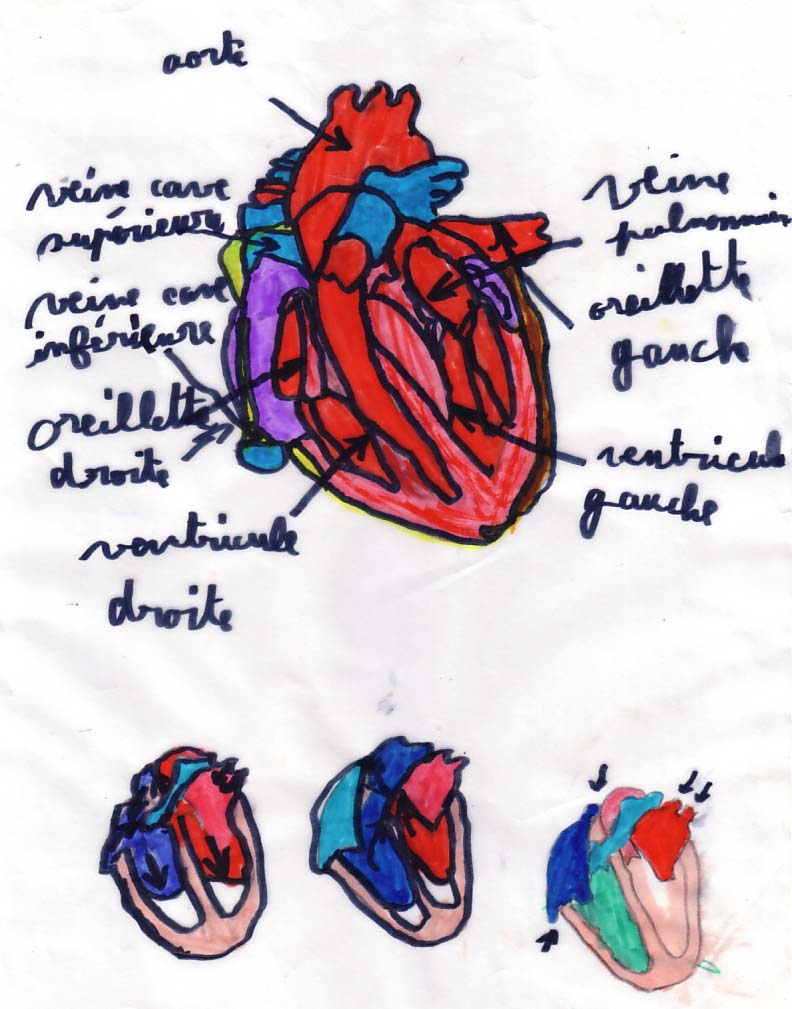 aorte
veine cave
supérieure
veine cave
inférieure
oreillette
droite
ventricule
droite
veine
pulmonaire
oreillette
gauche
ventricule
gauche